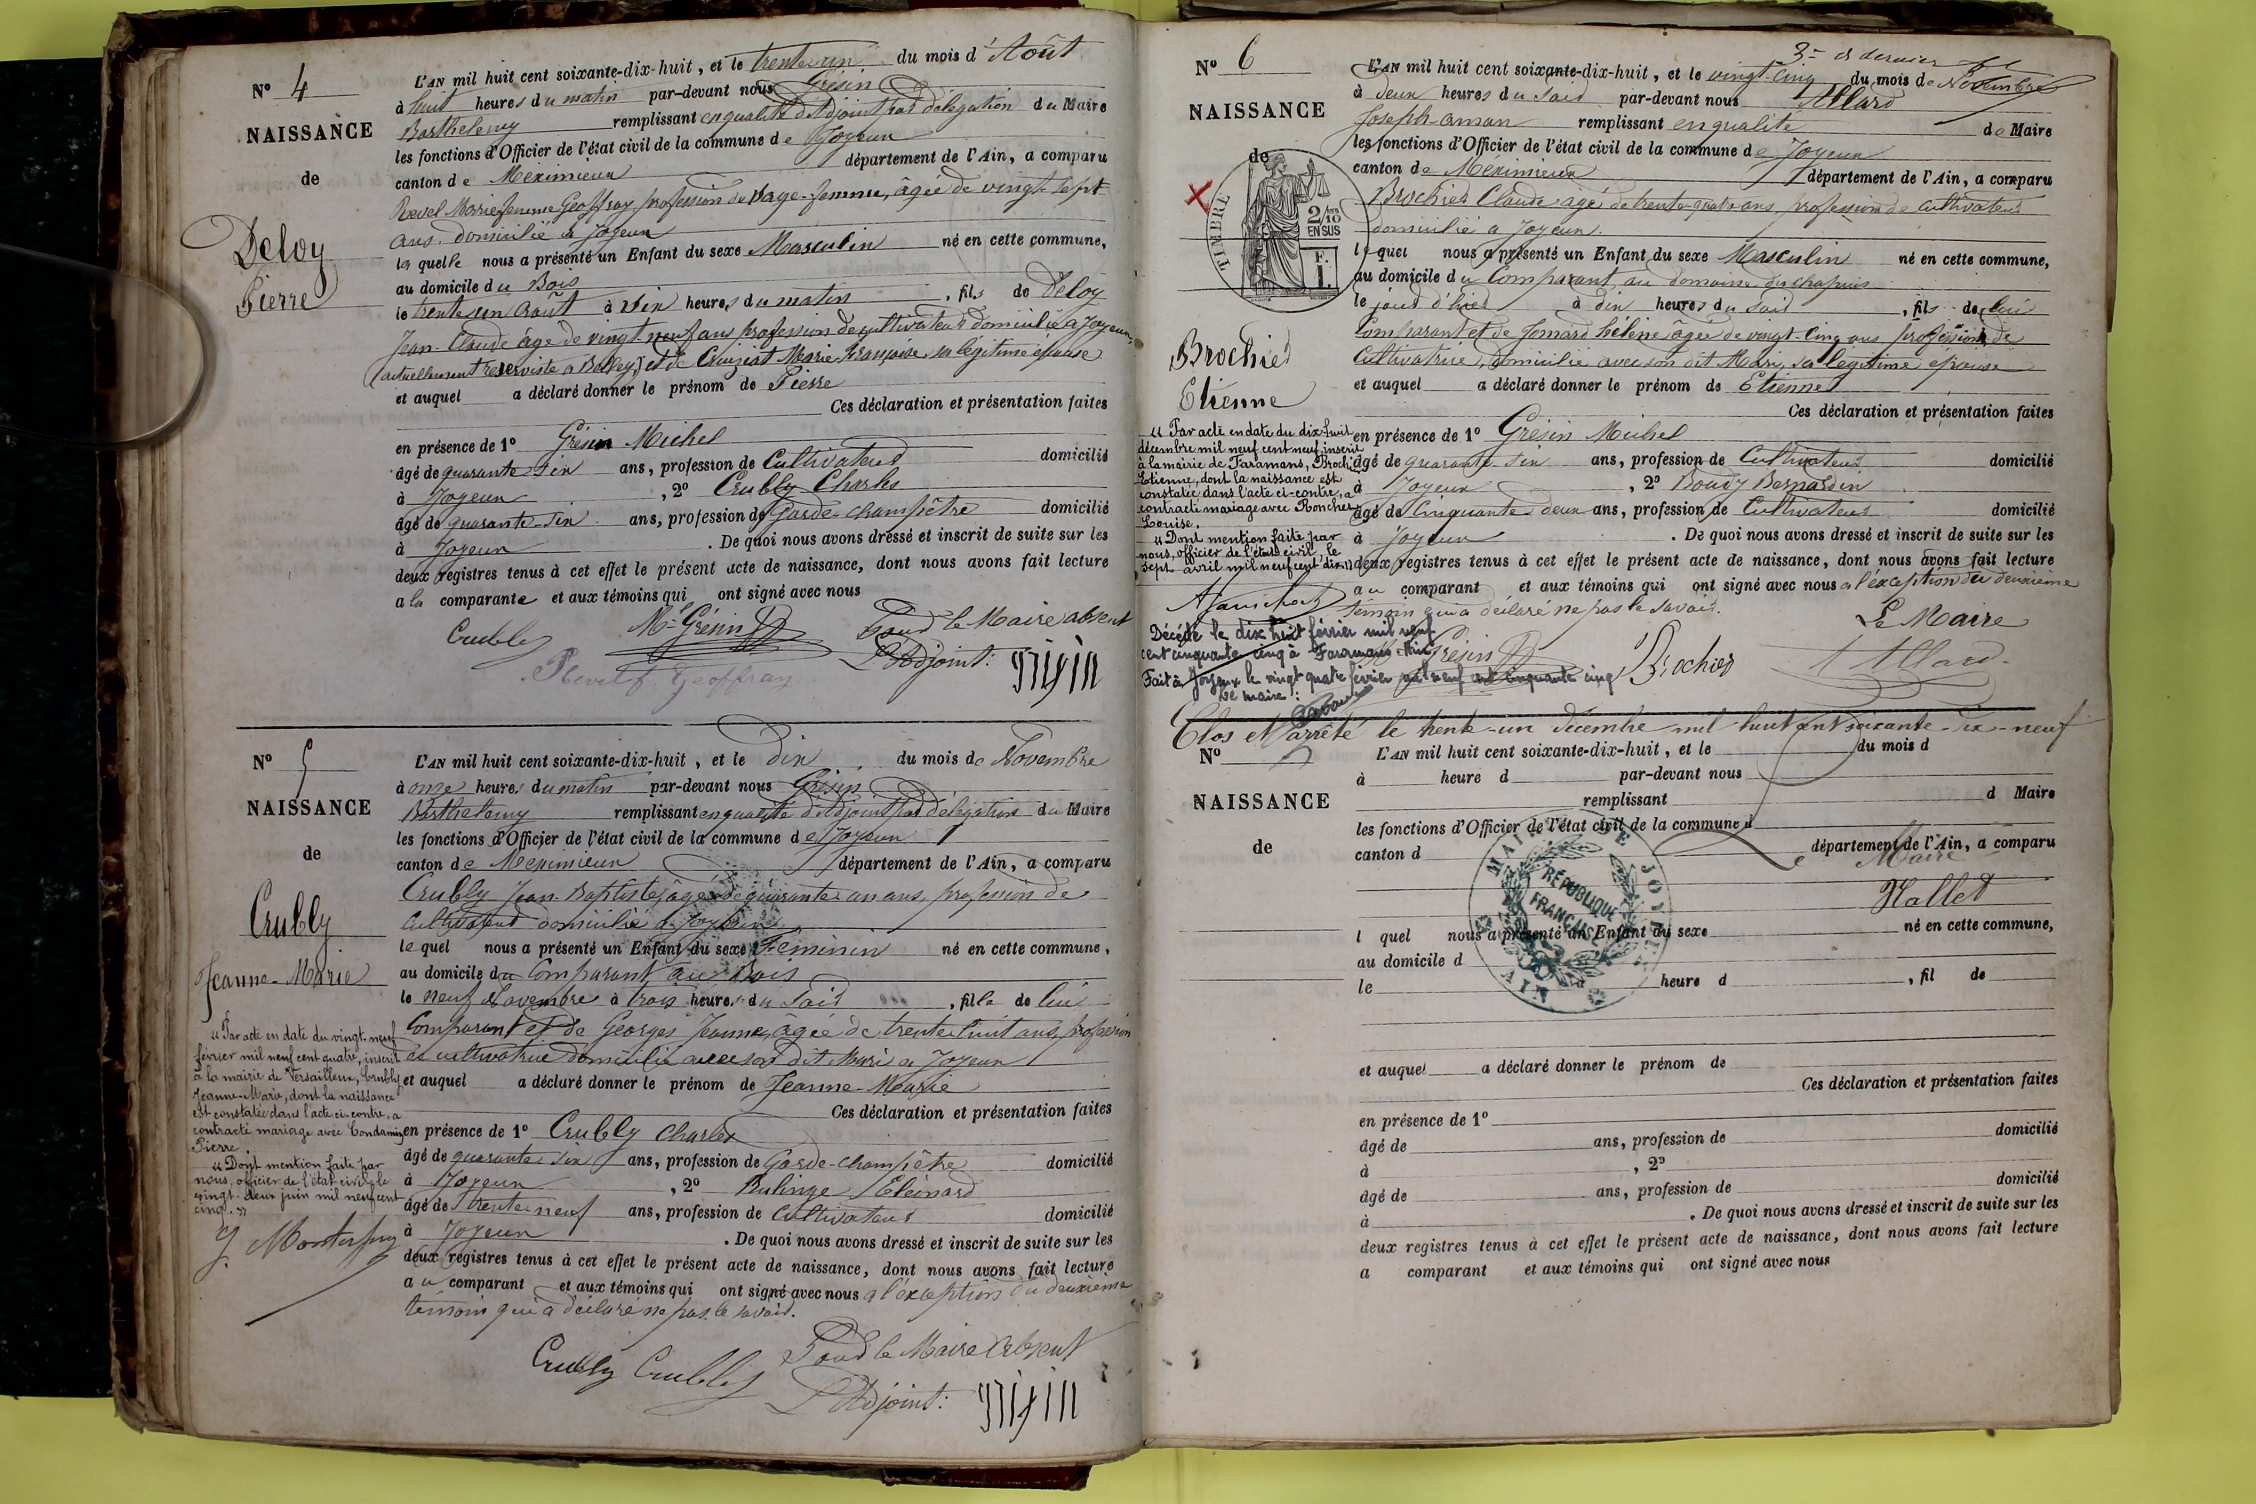 N° 4
NAISSANCE
de
Deloy
Pierre
L'AN mil huit cent soixante-dix-huit, et le trente un du mois d'Août
à huit heures du matin par-devant nous Grésin
Barthelemy remplissant en qualité d'Adjoint par délégation du Maire
les fonctions d'Officier de l'état civil de la commune de Joyeux
canton de Meximieux département de l'Ain, a comparu
Revel Marie femme Geoffray profession de Sage-femme, âgée de vingt-sept
ans domicilié à Joyeux
laquelle nous a présenté un Enfant du sexe Masculin né en cette commune,
au domicile du Bois
le trente un Août à six heures du matin, fils de Deloy
Jean-Claude âgé de vingt neuf ans profession de cultivateur domicilié à Joyeux
(actuellement réserviste à Belley) et de Cruziat Marie Françoise sa légitime épouse
et auquel a déclaré donner le prénom de Pierre
Ces déclaration et présentation faites
en présence de 1° Grésin Michel
âgé de quarante six ans, profession de Cultivateur domicilié
à Joyeux, 2° Crubly Charles
âgé de quarante-six ans, profession de Garde-champêtre domicilié
à Joyeux. De quoi nous avons dressé et inscrit de suite sur les
deux registres tenus à cet effet le présent acte de naissance, dont nous avons fait lecture
a la comparante et aux témoins qui ont signé avec nous
Crubly Mel Grésin Pour le Maire absent
Revel f. Geoffray L'Adjoint: Grésin
N° 5
NAISSANCE
de
Crubly
Jeanne-Marie
"Par acte en date du vingt-neuf
février mil neuf cent quatre, inscrit
à la mairie de Versailleux, Crubly
Jeanne-Marie, dont la naissance
est constatée dans l'acte ci-contre, a
contracté mariage avec Condamin
Pierre.
"Dont mention faite par
nous, officier de l'état-civil, le
vingt-deux juin mil neuf cent
cinq."
L'AN mil huit cent soixante-dix-huit, et le dix du mois de Novembre
à onze heures du matin par-devant nous Grésin
Barthelemy remplissant en qualité d'Adjoint par délégation du Maire
les fonctions d'Officier de l'état civil de la commune de Joyeux
canton de Meximieux département de l'Ain, a comparu
Crubly Jean-Baptiste, âgé de quarante un ans, profession de
Cultivateur domicilié à Joyeux
lequel nous a présenté un Enfant du sexe Féminin né en cette commune,
au domicile du Comparant au Bois
le neuf Novembre à trois heures du soir, fille de lui
Comparant et de Georges Jeanne, âgée de trente huit ans, profession
de cultivatrice domicilié avec son dit Mari à Joyeux
et auquel a déclaré donner le prénom de Jeanne-Marie
Ces déclaration et présentation faites
en présence de 1° Crubly Charles
âgé de quarante six ans, profession de Garde-champêtre domicilié
à Joyeux, 2° Bulinge Eléonard
âgé de trente neuf ans, profession de Cultivateur domicilié
à Joyeux. De quoi nous avons dressé et inscrit de suite sur les
deux registres tenus à cet effet le présent acte de naissance, dont nous avons fait lecture
au comparant et aux témoins qui ont signé avec nous à l'exception du deuxième
témoin qui a déclaré ne pas le savoir.
Crubly Crubly Pour le Maire absent
L'Adjoint: Grésin
3e et dernier
N° 6
NAISSANCE
de
TIMBRE
2/10
EN SUS
F.
1.
Brochier
Etienne
"Par acte en date du dix-huit
décembre mil neuf cent neuf, inscrit
à la mairie de Faramans, Brochier
Etienne, dont la naissance est
constatée dans l'acte ci-contre, a
contracté mariage avec Poncher
Louise.
"Dont mention faite par
nous, officier de l'état-civil, le
sept avril mil neuf cent dix."
Décédé le dix huit février mil neuf
cent cinquante cinq à Faramans Ain
Fait à Joyeux le vingt quatre février mil neuf cent cinquante cinq
Le maire:
L'AN mil huit cent soixante-dix-huit, et le vingt-cinq du mois de Novembre
à deux heures du soir par-devant nous Allard
Joseph-aman remplissant en qualité de Maire
les fonctions d'Officier de l'état civil de la commune de Joyeux
canton de Méximieux département de l'Ain, a comparu
Brochier Claude âgé de trente-quatre ans, profession de Cultivateur
domicilié à Joyeux.
lequel nous a présenté un Enfant du sexe Masculin né en cette commune,
au domicile du Comparant, au domaine des chapuis
le jour d'hier à dix heures du soir, fils de lui
Comparant et de Jomard hélène âgée de vingt-cinq ans profession de
Cultivatrice, domicilié avec son dit Mari, sa légitime épouse
et auquel a déclaré donner le prénom de Etienne
Ces déclaration et présentation faites
en présence de 1° Grésin Michel
âgé de quarante-six ans, profession de Cultivateur domicilié
à Joyeux, 2° Bouvy Bernardin
âgé de Cinquante deux ans, profession de Cultivateur domicilié
à Joyeux. De quoi nous avons dressé et inscrit de suite sur les
deux registres tenus à cet effet le présent acte de naissance, dont nous avons fait lecture
au comparant et aux témoins qui ont signé avec nous à l'exception du deuxième
témoin qui a déclaré ne pas le savoir.
Le Maire
Grésin Brochier Allard
Clos et arrêté le trente-un décembre mil huit cent soixante-dix-neuf
Le Maire
N°
NAISSANCE
de
L'AN mil huit cent soixante-dix-huit, et le du mois d
à heure d par-devant nous
remplissant d Maire
les fonctions d'Officier de l'état civil de la commune d
canton d département de l'Ain, a comparu
l quel nous a présenté un Enfant du sexe né en cette commune,
au domicile d
le à heure d, fil de
et auquel a déclaré donner le prénom de
Ces déclaration et présentation faites
en présence de 1°
âgé de ans, profession de domicilié
à, 2°
âgé de ans, profession de domicilié
à. De quoi nous avons dressé et inscrit de suite sur les
deux registres tenus à cet effet le présent acte de naissance, dont nous avons fait lecture
a comparant et aux témoins qui ont signé avec nous
MAIRIE DE JOYEUX
RÉPUBLIQUE
FRANÇAISE
AIN